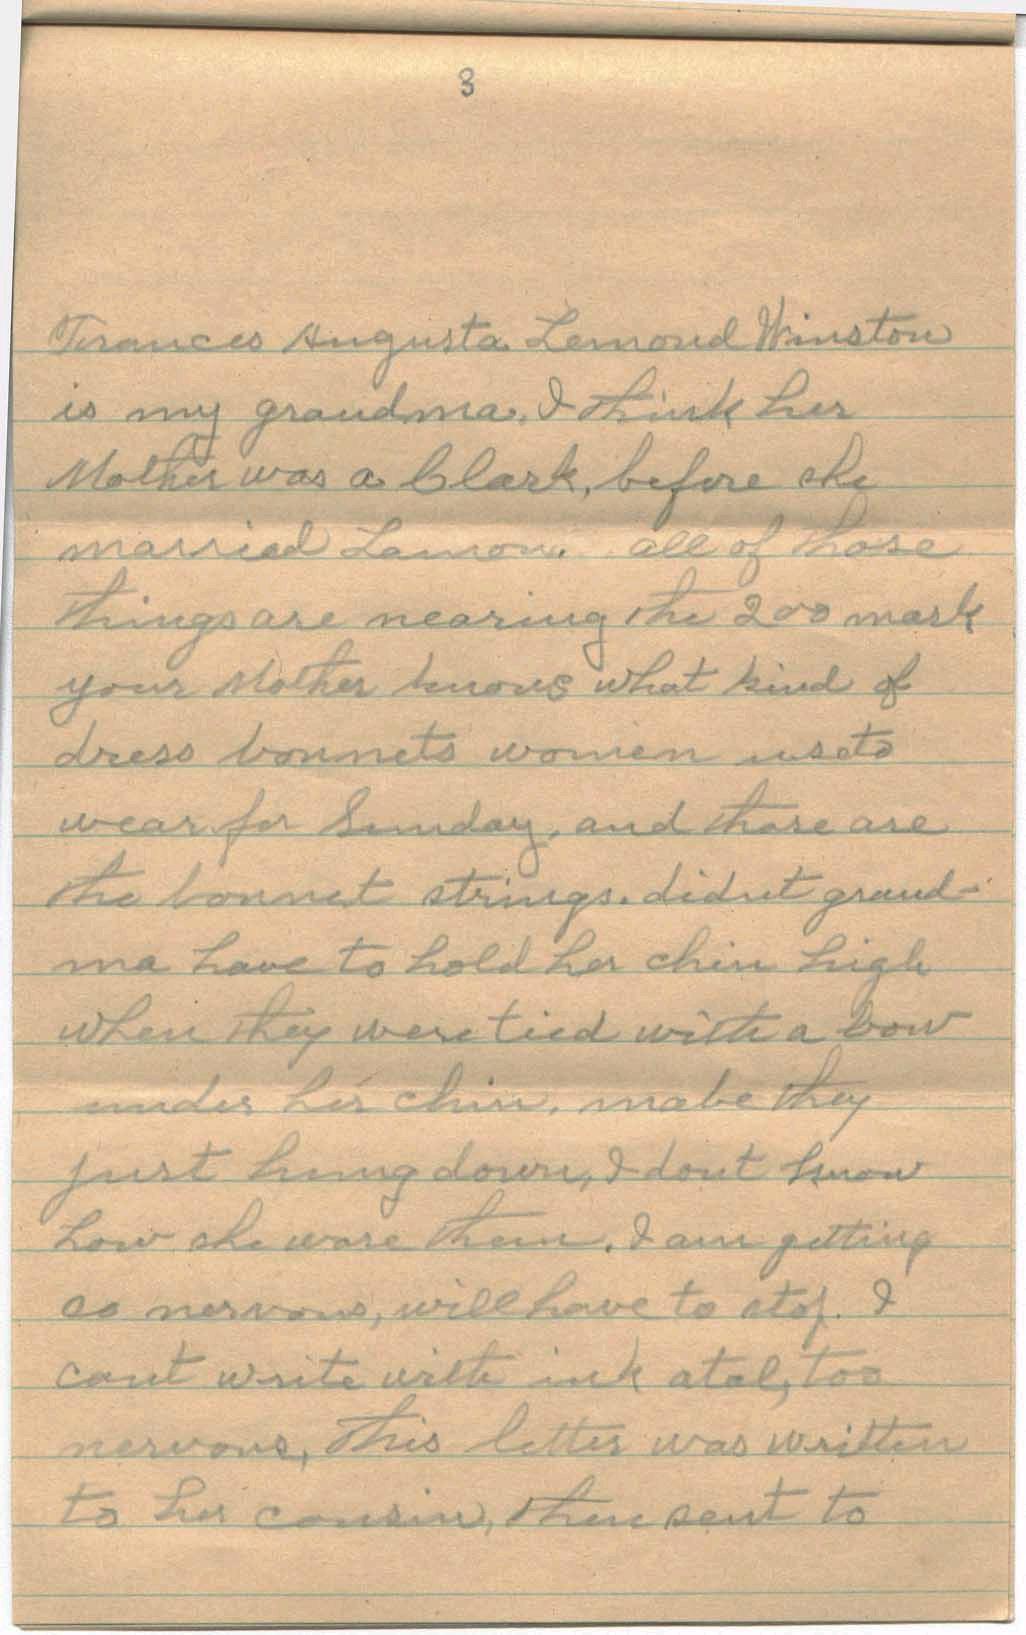 3
Frances Augusta Lemond Winston
is my grandma. I think her
Mother was a Clark, before she
married Lamon. all of those
things are nearing the 200 mark
your Mother knows what kind of
dress bonnets women useto
wear for Sunday, and those are
the bonnet strings. didnt grand-
ma have to hold her chin high
when they were tied with a bow
under her chin. mabe they
just hung down, I dont know
how she wore them. I am getting
so nervous, will have to stop. I
cant write with ink atal, too
nervous, this letter was written
to her cousin, then sent to